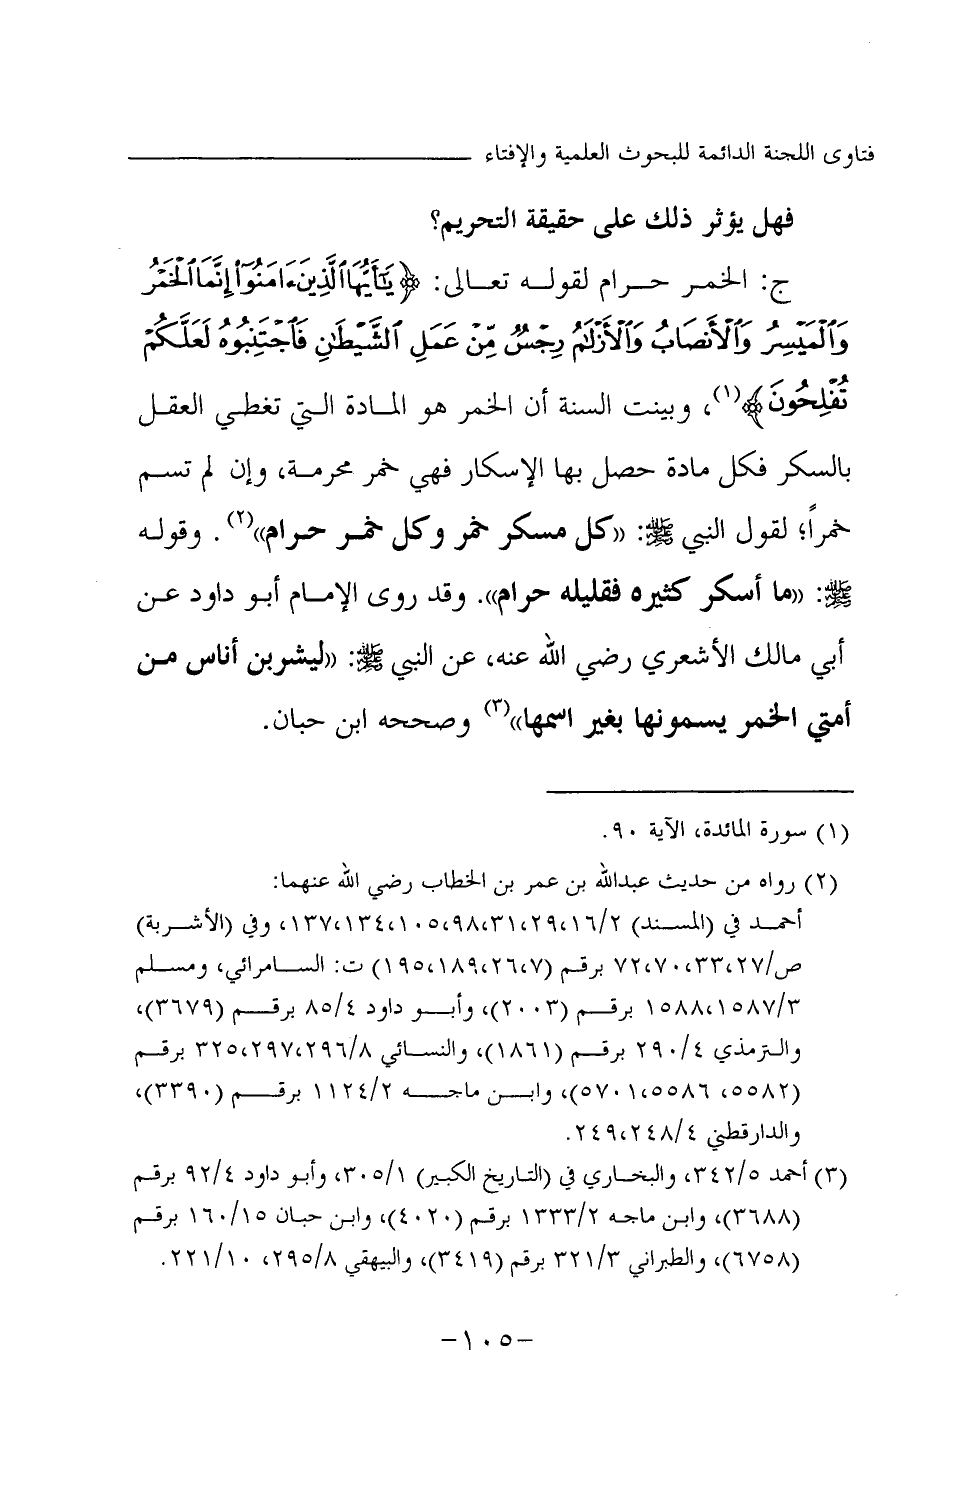 فتاوى اللجنة الدائمة للبحوث العلمية والإفتاء
فهل يؤثر ذلك على حقيقة التحريم؟
ج: الخمر حرام لقوله تعالى: ﴿يَٰٓأَيُّهَا ٱلَّذِينَ ءَامَنُوٓا۟ إِنَّمَا ٱلْخَمْرُ
وَٱلْمَيْسِرُ وَٱلْأَنصَابُ وَٱلْأَزْلَٰمُ رِجْسٌ مِّنْ عَمَلِ ٱلشَّيْطَٰنِ فَٱجْتَنِبُوهُ لَعَلَّكُمْ
تُفْلِحُونَ﴾(١)، وبينت السنة أن الخمر هو المادة التي تغطي العقل
بالسكر فكل مادة حصل بها الإسكار فهي خمر محرمة، وإن لم تسم
خمراً؛ لقول النبي ﷺ: «كل مسكر خمر وكل خمر حرام»(٢). وقوله
ﷺ: «ما أسكر كثيره فقليله حرام». وقد روى الإمام أبو داود عن
أبي مالك الأشعري رضي الله عنه، عن النبي ﷺ: «ليشربن أناس من
أمتي الخمر يسمونها بغير اسمها»(٣) وصححه ابن حبان.
(١) سورة المائدة، الآية ٩٠.
(٢) رواه من حديث عبدالله بن عمر بن الخطاب رضي الله عنهما:
أحمد في (المسند) ١٦/٢،٢٩،٣١،٩٨،١٠٥،١٣٤،١٣٧، وفي (الأشربة)
ص/٢٧،٣٣،٧٠،٧٢ برقم (٧،٢٦،١٨٩،١٩٥) ت: السامرائي، ومسلم
١٥٨٧/٣،١٥٨٨ برقم (٢٠٠٣)، وأبو داود ٨٥/٤ برقم (٣٦٧٩)،
والترمذي ٢٩٠/٤ برقم (١٨٦١)، والنسائي ٢٩٦/٨،٢٩٧،٣٢٥ برقم
(٥٥٨٢، ٥٥٨٦،٥٧٠١)، وابن ماجه ١١٢٤/٢ برقم (٣٣٩٠)،
والدارقطني ٢٤٨/٤،٢٤٩.
(٣) أحمد ٣٤٢/٥، والبخاري في (التاريخ الكبير) ٣٠٥/١، وأبو داود ٩٢/٤ برقم
(٣٦٨٨)، وابن ماجه ١٣٣٣/٢ برقم (٤٠٢٠)، وابن حبان ١٦٠/١٥ برقم
(٦٧٥٨)، والطبراني ٣٢١/٣ برقم (٣٤١٩)، والبيهقي ٢٩٥/٨، ٢٢١/١٠.
-١٠٥-